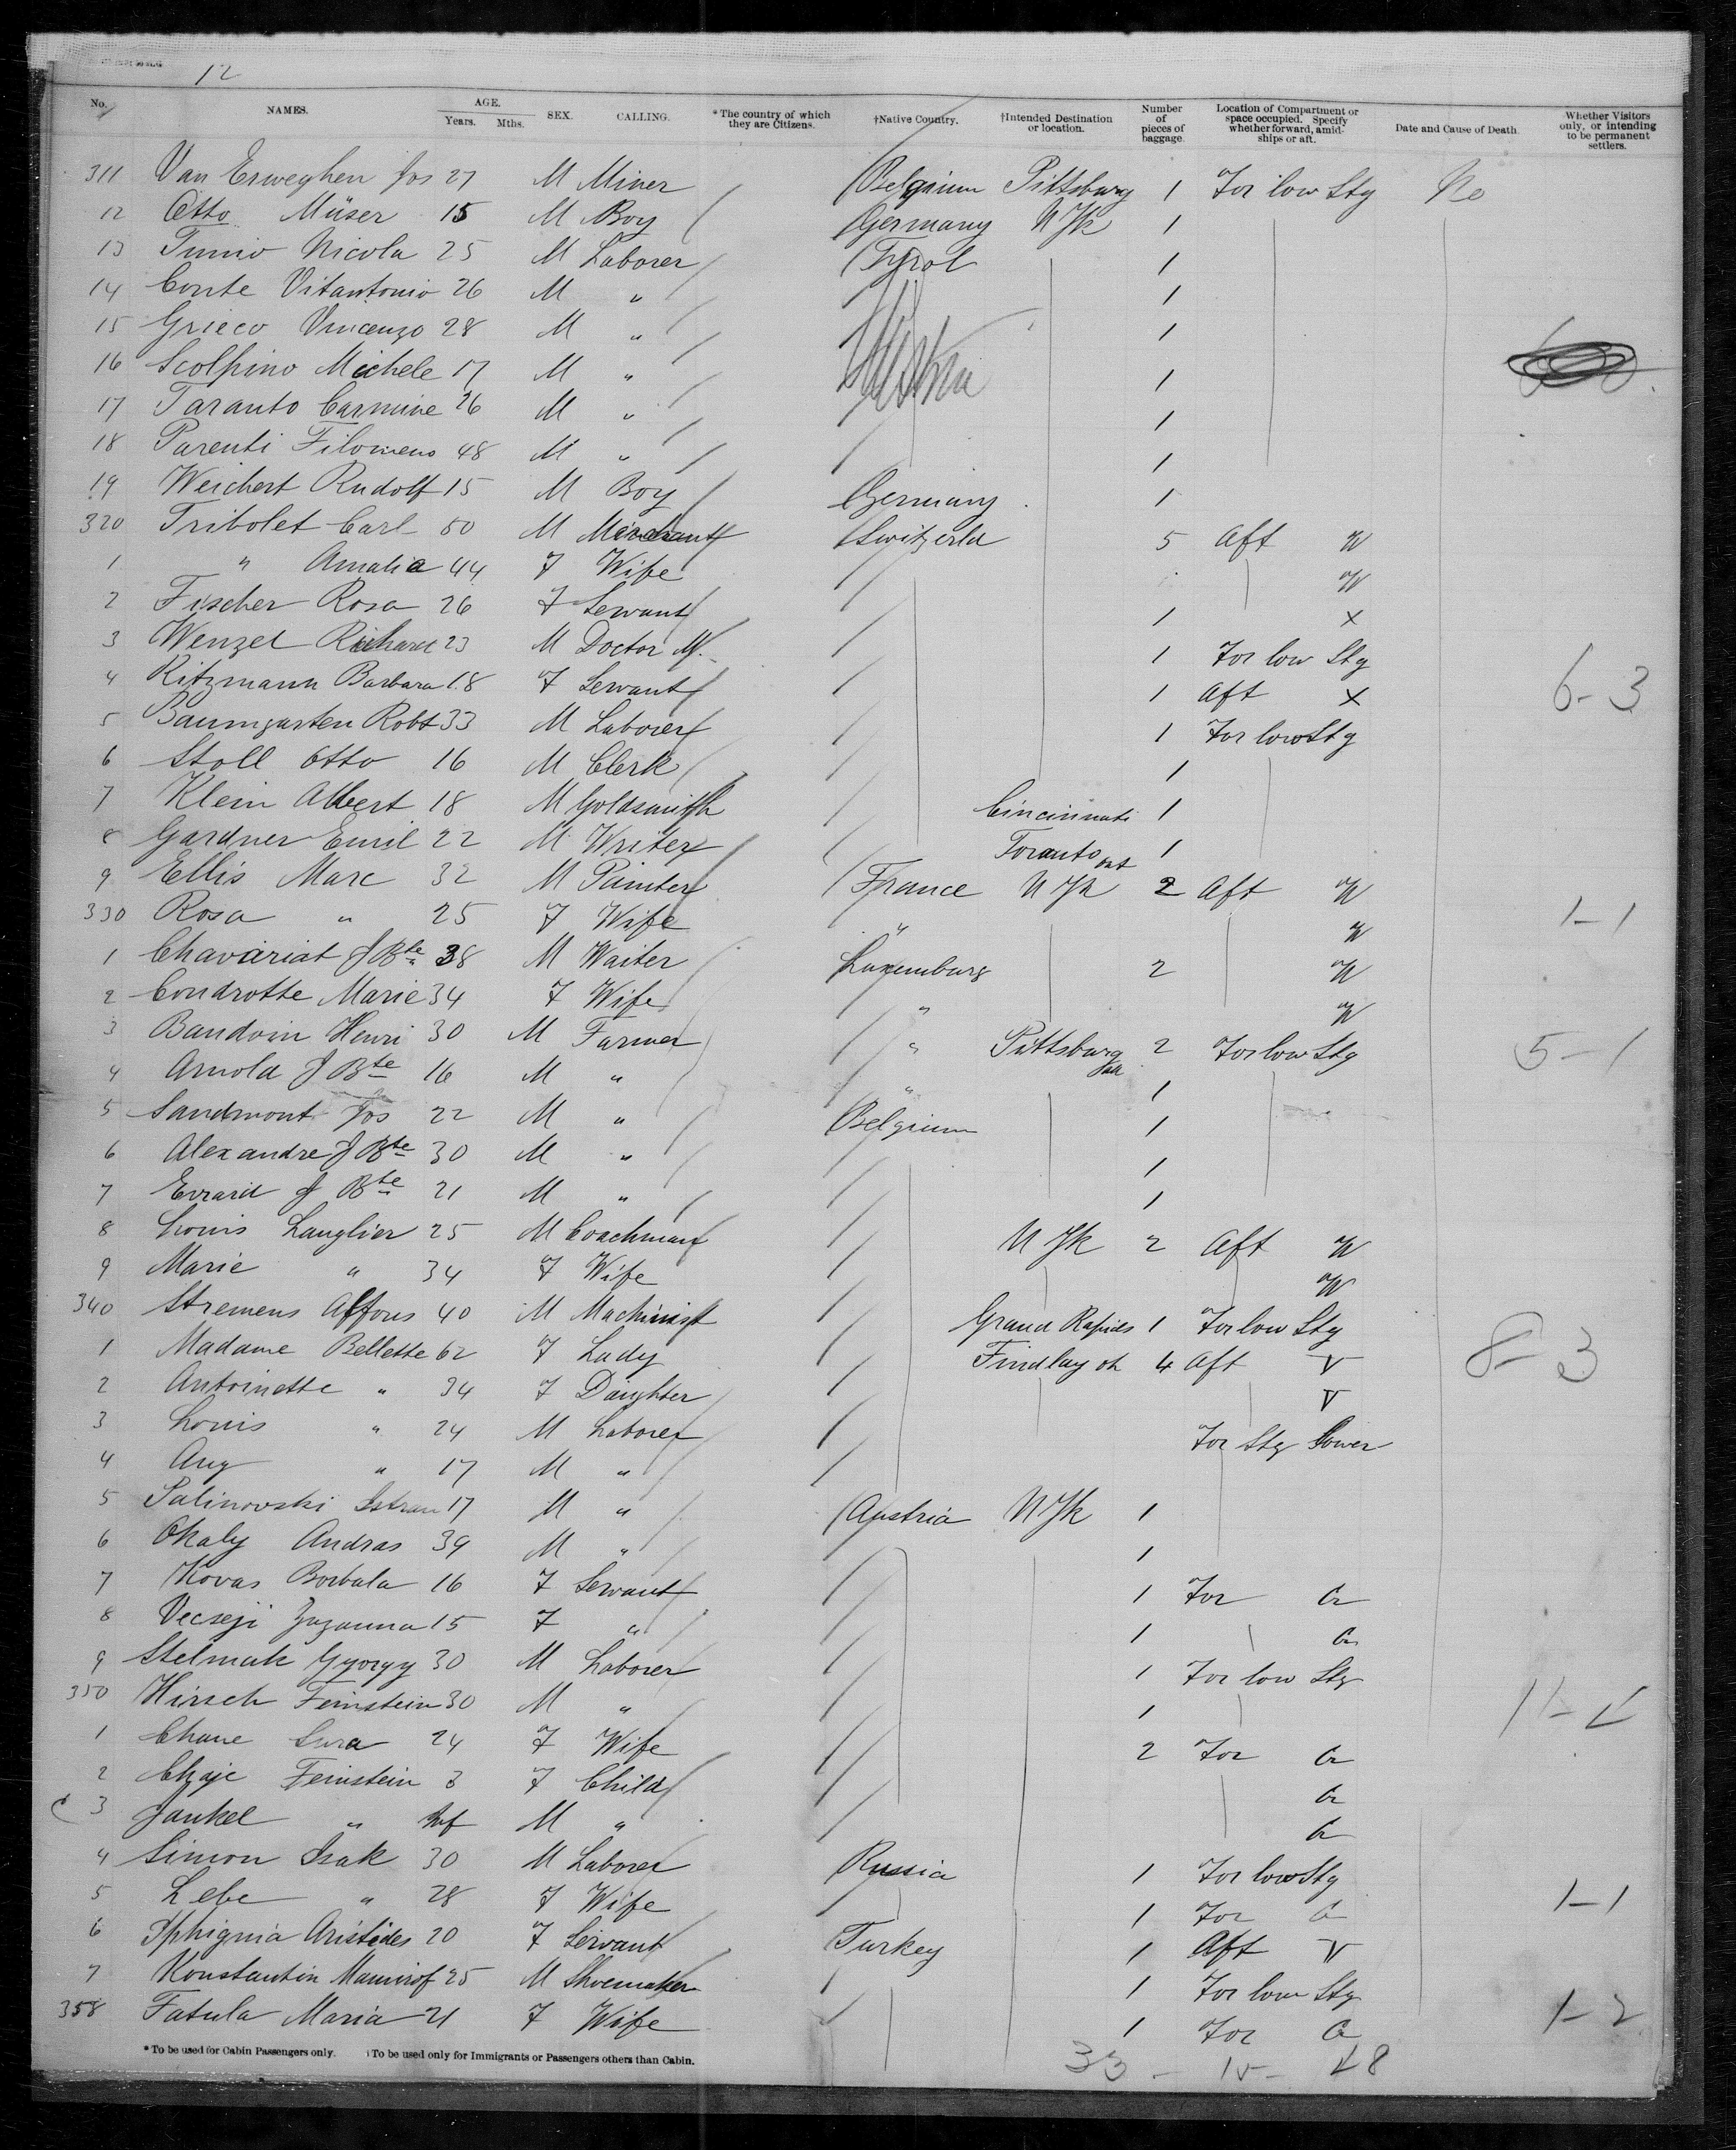 12
No. NAMES. AGE. Years. Mths. SEX. CALLING. *The country of which they are Citizens. †Native Country. †Intended Destination or location. Number of pieces of baggage. Location of Compartment or space occupied. Specify whether forward, amidships or aft. Date and Cause of Death. Whether Visitors only, or intending to be permanent settlers.
311 Van Erweghen Jos 27 M Miner Belgium Pittsburg 1 For low Stg No
12 Otto Müser 15 M Boy Germany N Yk 1
13 Tunio Nicola 25 M Laborer Tyrol 1
14 Conte Vitantonio 26 M " 1
15 Grieco Vincenzo 28 M " 1
16 Scolpino Michele 17 M " 1
17 Taranto Carmine 26 M " 1
18 Parenti Filomeno 48 M " 1
19 Weichert Rudolf 15 M Boy Germany 1
320 Tribolet Carl 50 M Merchant Switzerld 5 Aft W
1 " Amalia 44 F Wife W
2 Fischer Rosa 26 F Servant 1 X
3 Wenzel Richard 23 M Doctor M. 1 For low Stg
4 Ritzmann Barbara 18 F Servant 1 Aft X 6-3
5 Baumgarten Robt 33 M Laborer 1 For low Stg
6 Stoll Otto 16 M Clerk 1
7 Klein Albert 18 M Goldsmith Cincinnati 1
8 Gardner Emil 22 M Writer Toranto ont 1
9 Ellis Marc 32 M Painter France N Yk 2 Aft W
330 Rosa " 25 F Wife " W 1-1
1 Chavariat J Bte 38 M Waiter Luxemburg 2 W
2 Condrotte Marie 34 F Wife " W
3 Baudoin Henri 30 M Farmer " Pittsburg 2 For low Stg 5-1
4 Arnold J Bte 16 M " " 1
5 Sandmont Jos 22 M " Belgium 1
6 Alexandre J Bte 30 M " 1
7 Evrard J Bte 21 M " 1
8 Louis Langlier 25 M Coachman N Yk 2 Aft W
9 Marie " 34 F Wife W
340 Stremens Alfons 40 M Machinist Grand Rapids 1 For low Stg
1 Madame Bellette 62 F Lady Findlay oh 4 Aft V 8-3
2 Antoinette " 34 F Daughter V
3 Louis " 24 M Laborer For Stg Lower
4 Aug " 17 M "
5 Salinovski Istvan 17 M " Austria N Yk 1
6 Okaly Andras 39 M " 1
7 Kovas Borbala 16 F Servant 1 For a
8 Vecseji Zuzanna 15 F " 1 a
9 Stelmak Gyorgy 30 M Laborer 1 For low Stg
350 Hirsch Feinstein 30 M " 1
1 Chane Sura 24 F Wife 2 For a
2 Chaje Feinstein 3 F Child a
3 Jankel " Inf M " a
4 Simon Isak 30 M Laborer Russia 1 For low Stg
5 Lebe " 28 F Wife 1 For a 1-1
6 Iphignia Aristides 20 F Servant Turkey 1 Aft V
7 Konstantin 25 M Shoemaker 1 For low Stg
358 Fatula Maria 21 F Wife 1 For a 1-2
*To be used for Cabin Passengers only. †To be used only for Immigrants or Passengers others than Cabin.
33 - 15 - 48